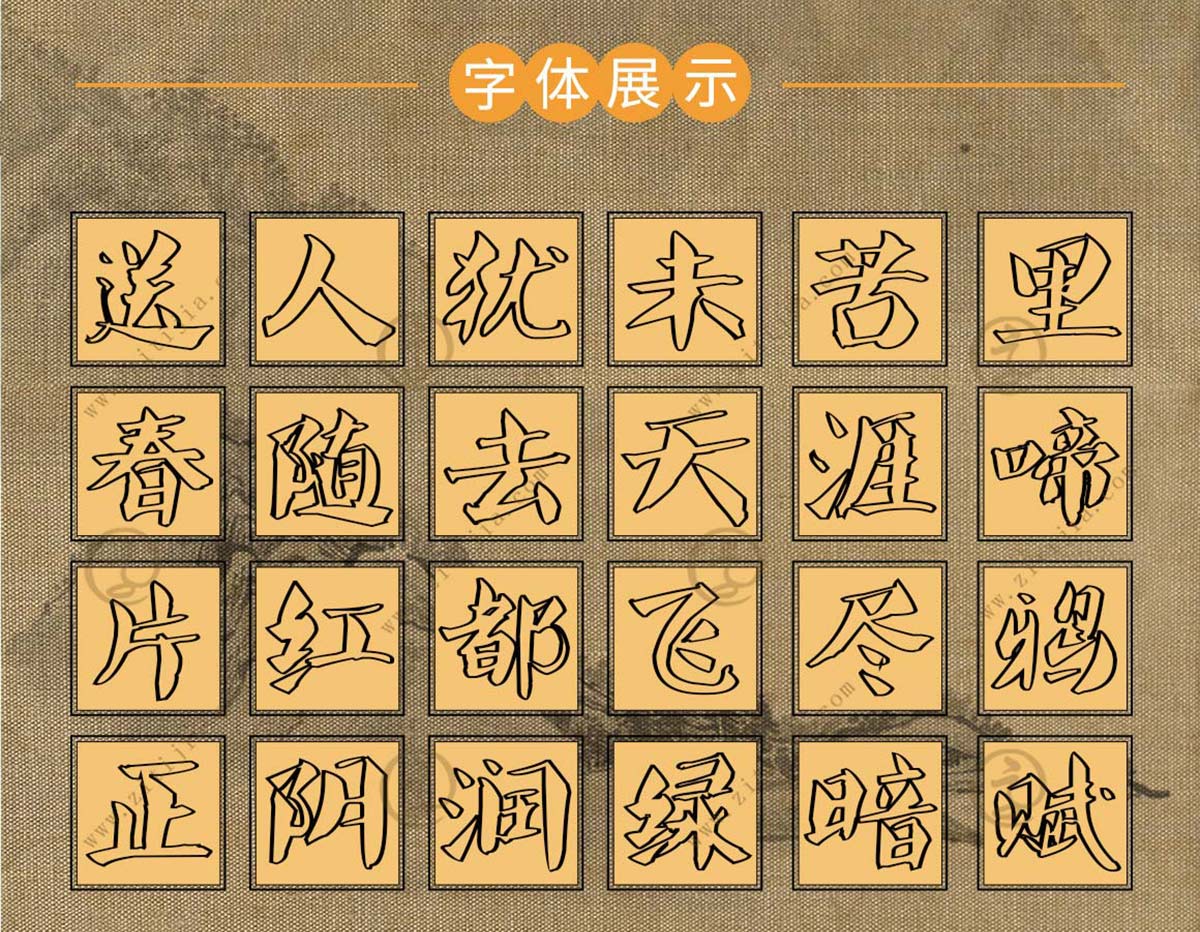 字体展示
送人犹未苦里
春随去天涯啼
片红都飞尽鸦
正阴润绿暗赋